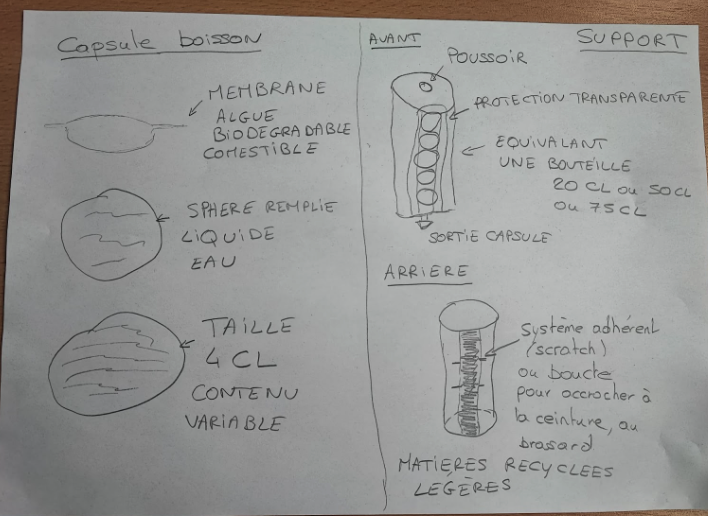 Capsule boisson
MEMBRANE
ALGUE
BIODEGRADABLE
COMESTIBLE
SPHERE REMPLIE
LIQUIDE
EAU
TAILLE
4 CL
CONTENU
VARIABLE
AVANT
SUPPORT
POUSSOIR
PROTECTION TRANSPARENTE
EQUIVALANT
UNE BOUTEILLE
20 CL ou 50 CL
ou 75 CL
SORTIE CAPSULE
ARRIERE
Système adhérent
(scratch)
ou boucle
pour accrocher à
la ceinture, au
brassard
MATIERES RECYCLEES
LÉGÈRES